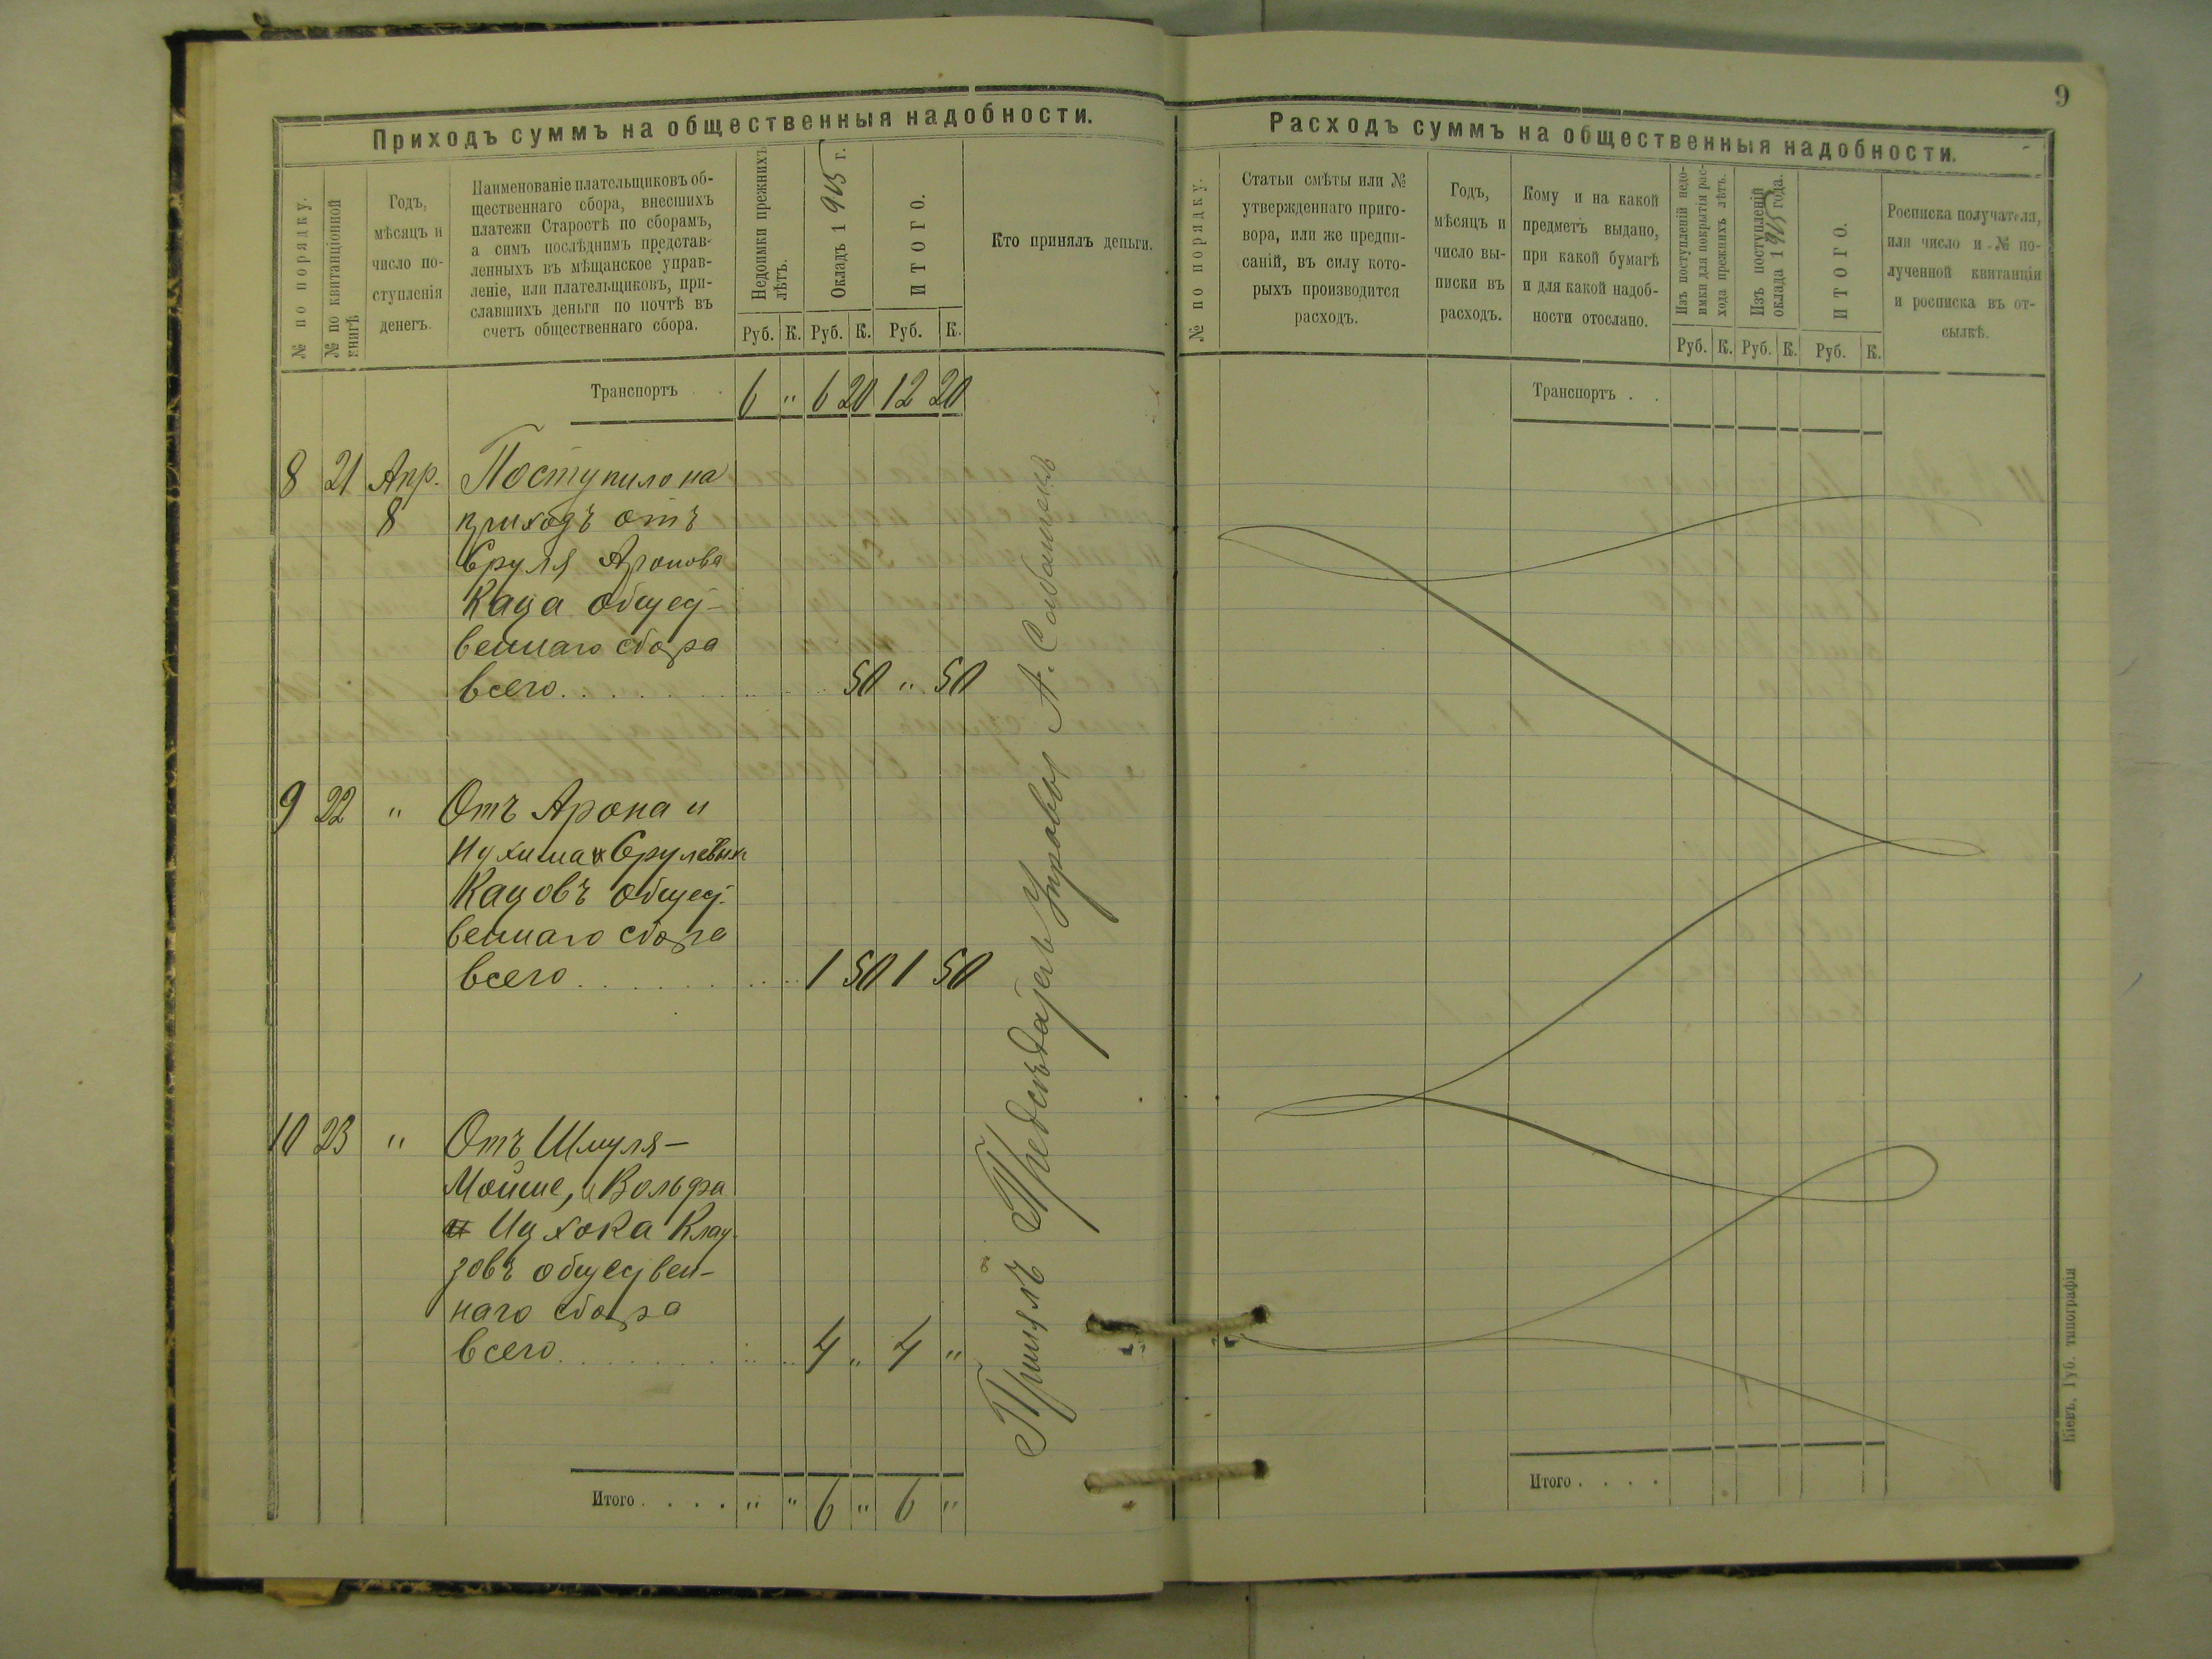 9
Приходъ суммъ на общественныя надобности.
№ по порядку.
№ по квитанціонной
книгѣ
Годъ,
мѣсяцъ и
число по-
ступленія
денегъ.
Наименованіе плательщиковъ об-
щественнаго сбора, внесшихъ
платежи Старостѣ по сборамъ,
а симъ послѣднимъ представ-
ленныхъ въ мѣщанское управ-
леніе, или плательщиковъ, при-
славшихъ деньги по почтѣ въ
счетъ общественнаго сбора.
Недоимки прежнихъ
лѣтъ.
Окладъ 1915 г.
ИТОГО.
Кто принялъ деньги.
Руб. К. Руб. К. Руб. К.
Транспортъ 6 " 6 20 12 20
8 21 Апр. Поступило на
8 приходъ отъ
Сруля Аронова
Каца общест-
веннаго сбора
всего 50 " 50
9 22 " Отъ Арона и
Нухима Срулевыхъ
Кацовъ общест-
веннаго сбора
всего 1 50 1 50
10 23 " Отъ Шмуля-
Мойше, Вольфа
и Ицхока Клау-
зовъ обществен-
наго сбора
всего 4 " 4 "
Итого . . . . " " 6 " 6 "
Принялъ Предсѣдатель Управы А.
Расходъ суммъ на общественныя надобности.
№ по порядку.
Статьи смѣты или №
утвержденнаго приго-
вора, или же предпи-
саній, въ силу кото-
рыхъ производится
расходъ.
Годъ,
мѣсяцъ и
число вы-
писки въ
расходъ.
Кому и на какой
предметъ выдано,
при какой бумагѣ
и для какой надоб-
ности отослано.
Изъ поступленій недо-
имки для покрытія рас-
хода прежнихъ лѣтъ.
Изъ поступленій
оклада 1915 года.
ИТОГО.
Росписка получателя,
или число и № по-
лученной квитанціи
и росписка въ от-
сылкѣ.
Руб. К. Руб. К. Руб. К.
Транспортъ . .
Итого . . . .
Кіевъ, Губ. типографія